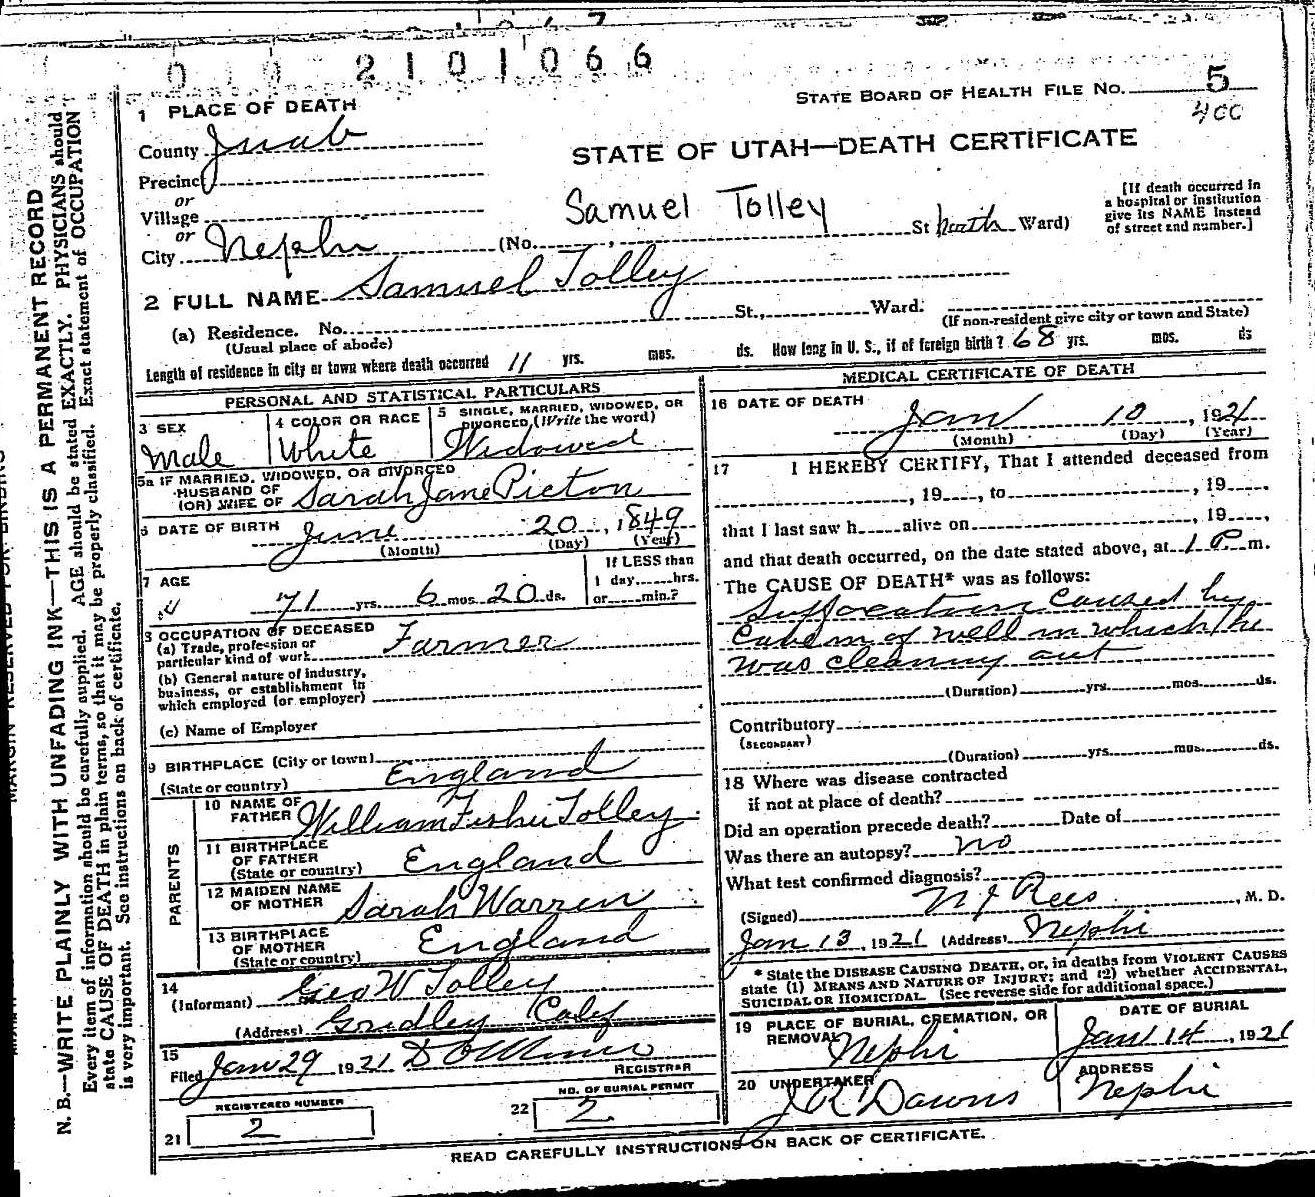 0 1 2101066
STATE BOARD OF HEALTH FILE NO. 5
400
1 PLACE OF DEATH
County Juab
STATE OF UTAH—DEATH CERTIFICATE
Precinct
or
Village
or
City Nephi (No. , St North Ward)
Samuel Tolley
[If death occurred in
a hospital or institution
give its NAME instead
of street and number.]
2 FULL NAME Samuel Tolley
(a) Residence. No. St., Ward.
(Usual place of abode)
(If non-resident give city or town and State)
Length of residence in city or town where death occurred 11 yrs. mos. ds. How long in U. S., if of foreign birth? 68 yrs. mos. ds
PERSONAL AND STATISTICAL PARTICULARS
3 SEX
Male
4 COLOR OR RACE
White
5 SINGLE, MARRIED, WIDOWED, OR
DIVORCED, (Write the word)
Widowed
5a IF MARRIED, WIDOWED, OR DIVORCED
HUSBAND OF
(OR) WIFE OF Sarah Jane Picton
6 DATE OF BIRTH June 20, 1849
(Month) (Day) (Year)
7 AGE
71 yrs. 6 mos. 20 ds.
If LESS than
1 day hrs.
or min.?
8 OCCUPATION OF DECEASED
(a) Trade, profession or
particular kind of work Farmer
(b) General nature of industry,
business, or establishment in
which employed (or employer)
(c) Name of Employer
9 BIRTHPLACE (City or town)
(State or country) England
PARENTS
10 NAME OF
FATHER William Fisher Tolley
11 BIRTHPLACE
OF FATHER
(State or country) England
12 MAIDEN NAME
OF MOTHER Sarah Warren
13 BIRTHPLACE
OF MOTHER
(State or country) England
14
(Informant) Geo W Tolley
(Address) Gridley Calif
15
Filed Jan 29 1921
REGISTRAR
REGISTERED NUMBER
21 2
NO. OF BURIAL PERMIT
22 2
MEDICAL CERTIFICATE OF DEATH
16 DATE OF DEATH
Jan 10, 1921
(Month) (Day) (Year)
17 I HEREBY CERTIFY, That I attended deceased from
, 19 , to , 19 ,
that I last saw h alive on , 19 ,
and that death occurred, on the date stated above, at 1 P m.
The CAUSE OF DEATH* was as follows:
Suffocation caused by
Cave in of well in which he
was cleaning out
(Duration) yrs. mos. ds.
Contributory
(SECONDARY)
(Duration) yrs. mos. ds.
18 Where was disease contracted
if not at place of death?
Did an operation precede death? Date of
Was there an autopsy? no
What test confirmed diagnosis?
(Signed) N J Rees, M. D.
Jan 13, 1921 (Address) Nephi
* State the DISEASE CAUSING DEATH, or, in deaths from VIOLENT CAUSES
state (1) MEANS AND NATURE OF INJURY; and (2) whether ACCIDENTAL,
SUICIDAL OR HOMICIDAL. (See reverse side for additional space.)
19 PLACE OF BURIAL, CREMATION, OR
REMOVAL Nephi
DATE OF BURIAL
Jan 14, 1921
20 UNDERTAKER
J R Dawns
ADDRESS
Nephi
READ CAREFULLY INSTRUCTIONS ON BACK OF CERTIFICATE.
MARGIN RESERVED FOR BINDING
N. B.—WRITE PLAINLY WITH UNFADING INK—THIS IS A PERMANENT RECORD
Every item of information should be carefully supplied. AGE should be stated EXACTLY. PHYSICIANS should
state CAUSE OF DEATH in plain terms, so that it may be properly classified. Exact statement of OCCUPATION
is very important. See instructions on back of certificate.